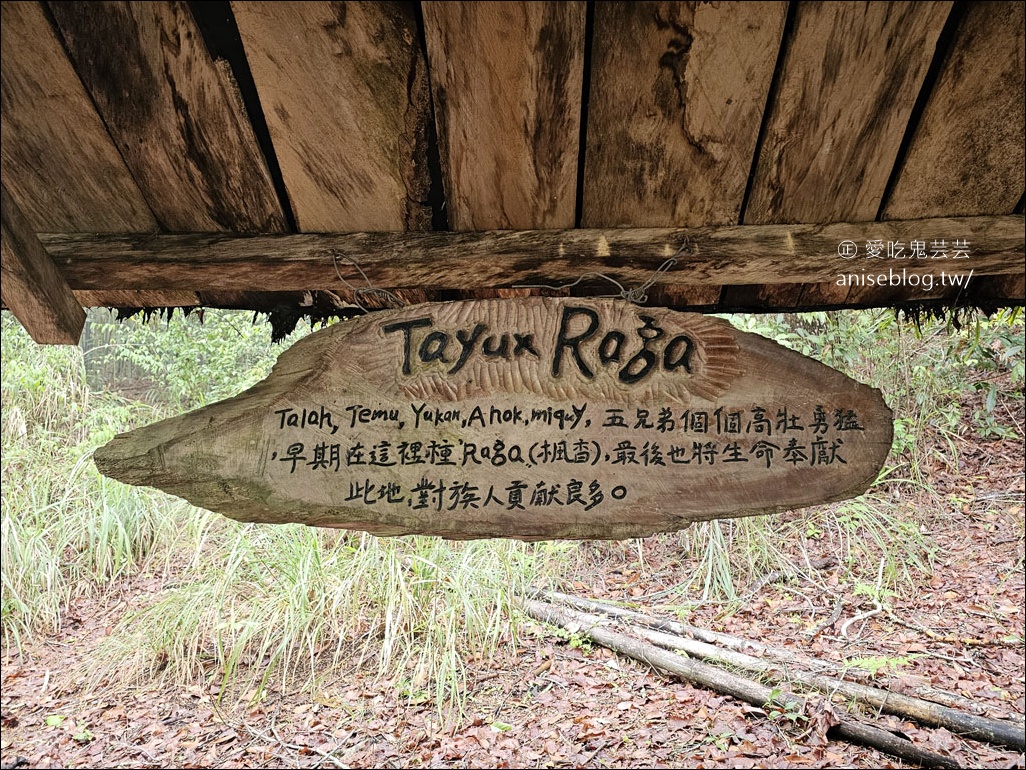 ㊣ 愛吃鬼芸芸
aniseblog.tw/
Tayux Raga
Talah, Temu, Yukan, Ahok, miquy, 五兄弟個個高壯勇猛
,早期在這裡種Raga(楓香),最後也將生命奉獻
此地,對族人貢獻良多。